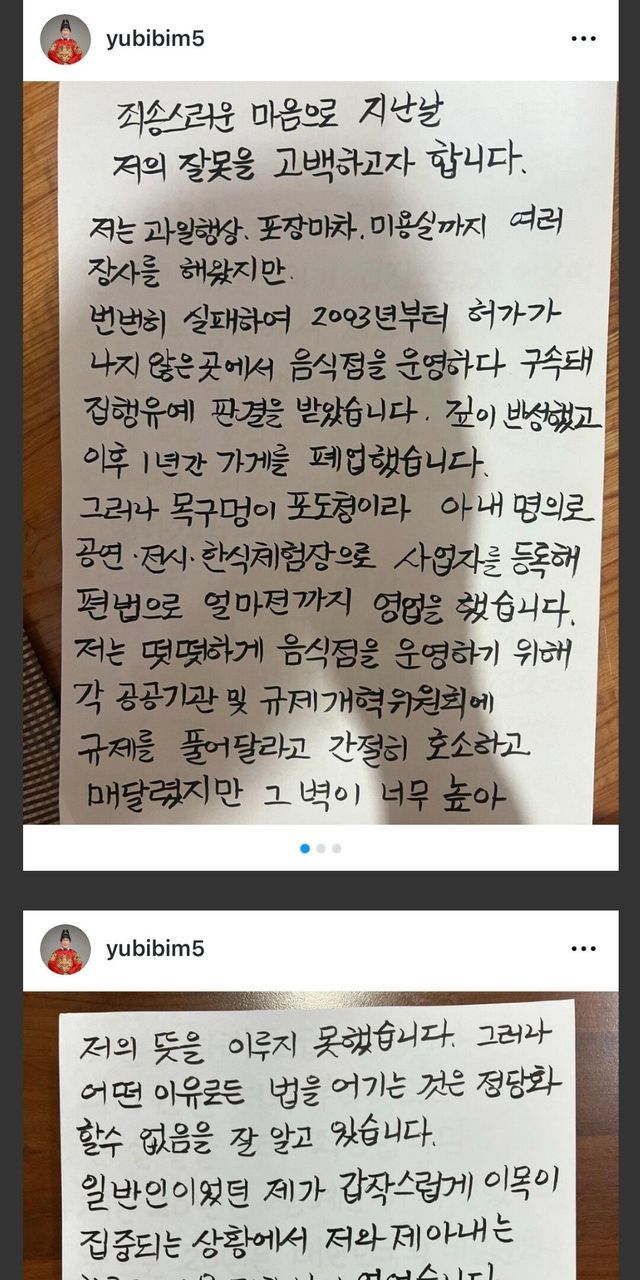 yubibim5
죄송스러운 마음으로 지난날
저의 잘못을 고백하고자 합니다.
저는 과일행상, 포장마차, 미용실까지 여러
장사를 해왔지만.
번번히 실패하여 2003년부터 허가가
나지 않은 곳에서 음식점을 운영하다 구속돼
집행유예 판결을 받았습니다. 깊이 반성했고
이후 1년간 가게를 폐업했습니다.
그러나 목구멍이 포도청이라 아내 명의로
공연·전시·한식체험장으로 사업자를 등록해
편법으로 얼마전까지 영업을 했습니다.
저는 떳떳하게 음식점을 운영하기 위해
각 공공기관 및 규제개혁위원회에
규제를 풀어달라고 간절히 호소하고
매달렸지만 그 벽이 너무 높아
yubibim5
저의 뜻을 이루지 못했습니다. 그러나
어떤 이유로든 법을 어기는 것은 정당화
할수 없음을 잘 알고 있습니다.
일반인이었던 제가 갑작스럽게 이목이
집중되는 상황에서 저와 제아내는